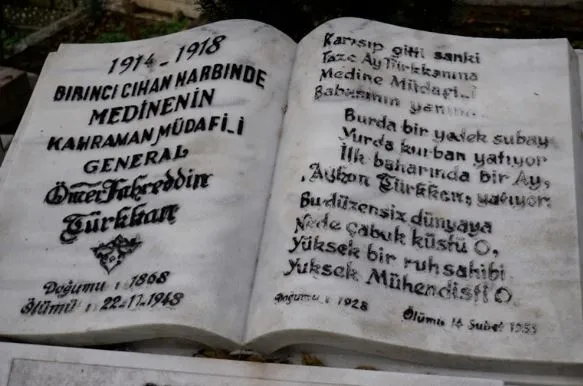 1914 - 1918
BİRİNCİ CİHAN HARBİNDE
MEDİNENİN
KAHRAMAN MÜDAFİ-İ
GENERAL
Ömer Fahreddin
Türkkan
Doğumu : 1868
Ölümü : 22-11-1948
Karışıp gitti sanki
Taze Ay Türkkanına
Medine Müdafi-i
Babasının yanına
Burda bir yedek subay
Yurda kurban yatıyor
İlk baharında bir Ay,
Aykan Türkkan, yatıyor.
Bu düzensiz dünyaya
Nede çabuk küstü O,
Yüksek bir ruh sahibi
Yüksek Mühendisti O
Doğumu : 1928
Ölümü 16 Şubat